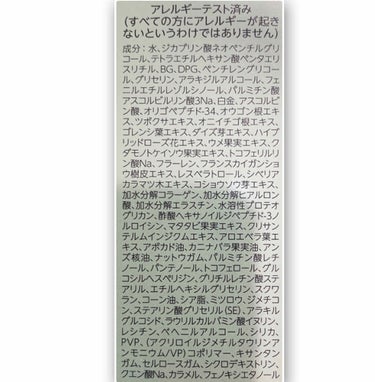 アレルギーテスト済み
(すべての方にアレルギーが起き
ないというわけではありません)
成分：水、ジカプリン酸ネオペンチルグリ
コール、テトラエチルヘキサン酸ペンタエリ
スリチル、BG、DPG、ペンチレングリコー
ル、グリセリン、アラキジルアルコール、フェ
ニルエチルレゾルシノール、パルミチン酸
アスコルビルリン酸3Na、白金、アスコルビ
ン酸、オリゴペプチド-34、オウゴン根エキ
ス、ツボクサエキス、オニイチゴ根エキス、
ゴレンシ葉エキス、ダイズ芽エキス、ハイブ
リッドローズ花エキス、ウメ果実エキス、ク
ダモノトケイソウ果実エキス、トコフェリルリン
酸Na、フラーレン、フランスカイガンショ
ウ樹皮エキス、レスベラトロール、シベリア
カラマツ木エキス、コショウソウ芽エキス、
加水分解コラーゲン、加水分解ヒアルロン
酸、加水分解エラスチン、水溶性プロテオ
グリカン、酢酸ヘキサノイルジペプチド-3ノ
ルロイシン、マタタビ果実エキス、クリサン
テルムインジクムエキス、アロエベラ葉エ
キス、アボカド油、カニナバラ果実油、アン
ズ核油、ナットウガム、パルミチン酸レチ
ノール、パンテノール、トコフェロール、グル
コシルヘスペリジン、グリチルレチン酸ステ
アリル、エチルヘキシルグリセリン、スクワ
ラン、コーン油、シア脂、ミツロウ、ジメチコ
ン、ステアリン酸グリセリル(SE)、アラキル
グルコシド、ラウリルカルバミン酸イヌリン、
レシチン、ベヘニルアルコール、シリカ、
PVP、(アクリロイルジメチルタウリンア
ンモニウム/VP)コポリマー、キサンタン
ガム、セルロースガム、シクロデキストリン、
クエン酸Na、カラメル、フェノキシエタノール